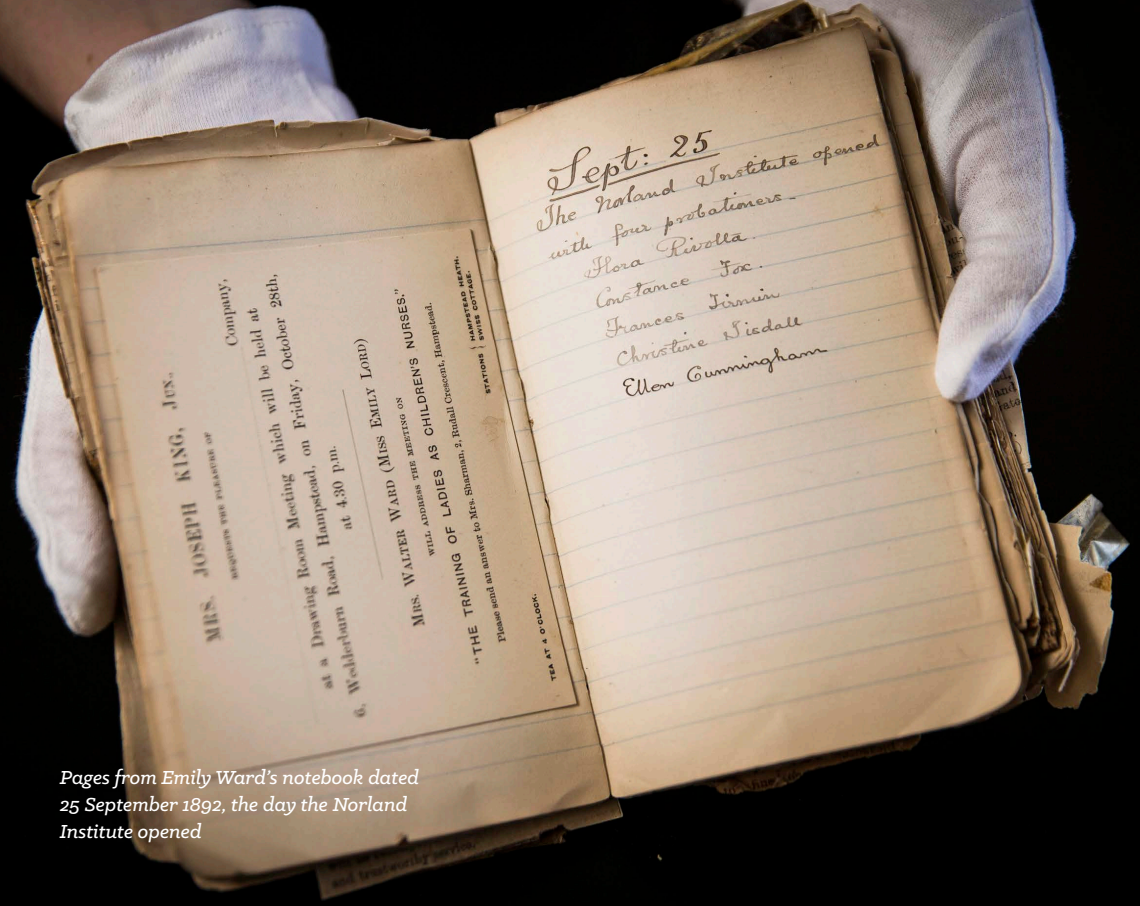 MRS. JOSEPH KING, JUN.,
REQUESTS THE PLEASURE OF
Company,
at a Drawing Room Meeting which will be held at
6, Wedderburn Road, Hampstead, on Friday, October 28th,
at 4.30 p.m.
MRS. WALTER WARD (MISS EMILY LORD)
WILL ADDRESS THE MEETING ON
"THE TRAINING OF LADIES AS CHILDREN'S NURSES."
Please send an answer to Mrs. Sharman, 2, Rudall Crescent, Hampstead.
STATIONS { HAMPSTEAD HEATH.
SWISS COTTAGE.
TEA AT 4 O'CLOCK.
Sept: 25
The Norland Institute opened
with four probationers-
Flora Rivolta.
Constance Fox.
Frances Firmin
Christine Tisdall
Ellen Cunningham
Pages from Emily Ward's notebook dated
25 September 1892, the day the Norland
Institute opened
and trustworthy service,